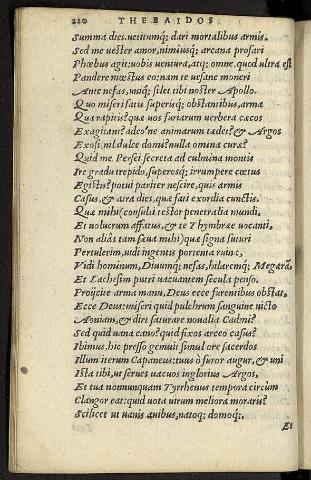 210 THEBAIDOS
Summa dies, uetitumq; dari mortalibus armis.
Sed me uester amor, nimiusq; arcana profari
Phœbus agit: uobis uentura, atq; omne, quod ultra est
Pandere mœstus eo: nam te uesane moneri
Ante nefas, unq; silet tibi noster Apollo.
Quo miseri fatis superisq; obstantibus, arma
Qua rapitis? quæ uos furiarum uerbera cæcos
Exagitant? adeo'ne animarum tædet? & Argos
Exosi, nil dulce domi? nulla omina curæ?
Quid me Persei secreta ad culmina montis
Ire gradu trepido, superosq; irrumpere cœtus
Egistis? potui pariter nescire, quis armis
Casus, & atra dies, quæ fati exordia cunctis.
Quæ mihi (consului testor penetralia mundi,
Et uolucrum affatus, & te Thymbræe uocanti,
Non aliâs tam sæua mihi) quæ signa futuri
Pertulerim, uidi ingentis portenta ruinæ,
Vidi hominum, Diuumq; nefas, hilaremq; Megarā,
Et Lachesim putri uacuantem sæcula penso.
Proijcite arma manu, Deus ecce furentibus obstat,
Ecce Deus: miseri quid pulchrum sanguine uicto
Aoniam, & diri saturare noualia Cadmi?
Sed quid uana cano? quid fixos arceo casus?
Ibimus, hic presso gemuit simul ore sacerdos
Illum iterum Capaneus: tuus ô furor augur, & uni
Ista tibi, ut serues uacuos inglorius Argos,
Et tua nonnunquam Tyrrhenus tempora circùm
Clangor eat: quid uota uirum meliora moraris?
Scilicet ut uanis auibus, natoq; domoq;.
Et